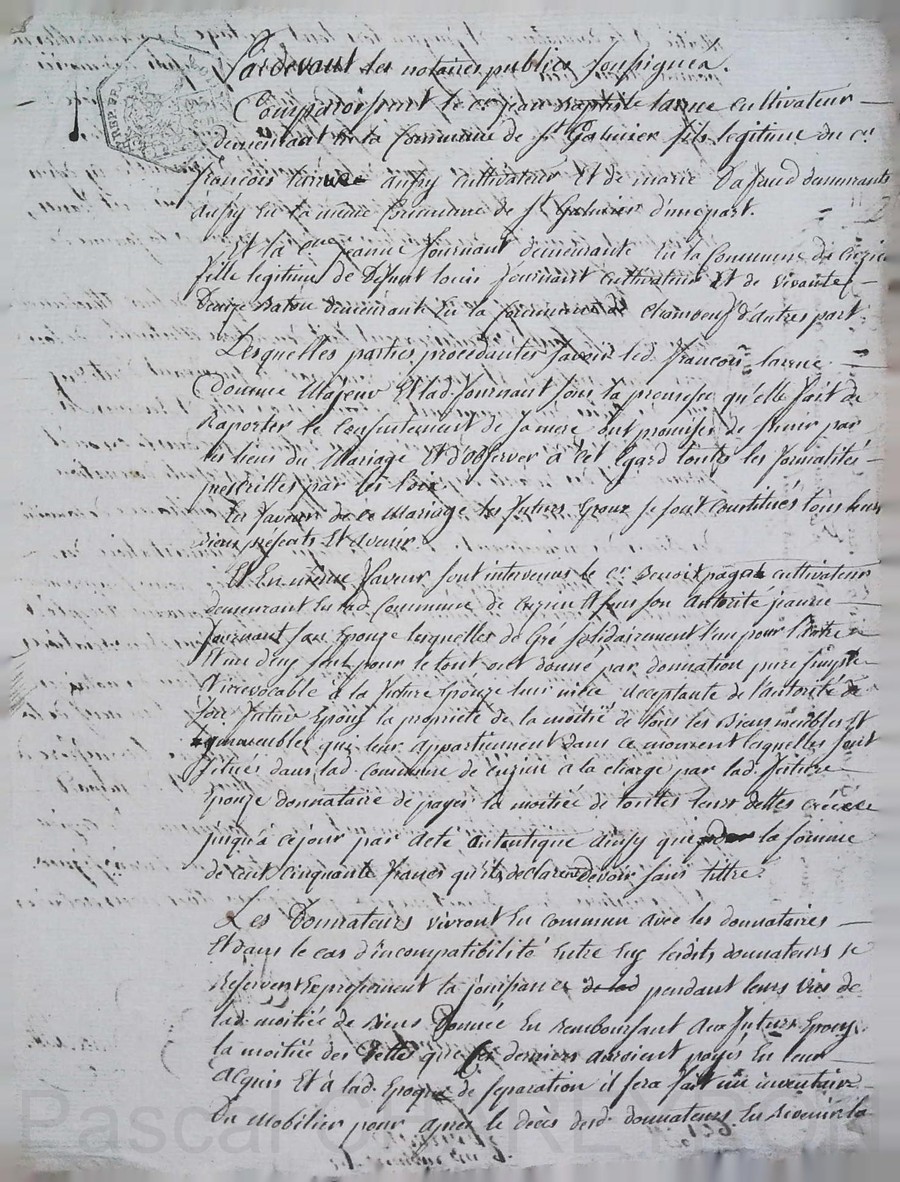 Pardevant les notaires publics soussignés.
Comparoissent le cen jean Baptiste larue cultivateur
demeurant en la Commune de St Galmier fils legitime du cn
francois larue aussy cultivateur Et de marie demeurants
aussy En la même Commune de St Galmier d'une part.
Et la cne jeanne fournant demeurante En la Commune de Cuzieu
fille legitime de Défunt louis fournant cultivateur Et de vivante
demeurante En la Commune de Chambeuf d'autres part.
Lesquelles parties procédantes savoir led. francois larue
Comme Majeur Et lad. fournant sous la promesse qu'elle fait de
Raporter le Consentement de sa mere ont promises de s'unir par
les liens du Mariage Et d'observer à cet Egard toutes les formalités
prescrittes par les loix
En faveur de ce Mariage les futurs Epoux se sont Constitués tous leurs
biens présents Et avenir.
Et En même faveur sont intervenus le cn Benoit pagat cultivateur
demeurant En lad. Commune de Cuzieu Et sous son autorité jeanne
fournant son Epouze lesquelles de Gré solidairement l'un pour l'autre
Et un d'eux seul pour le tout ont donné par donnation pure simple
Et irrevocable à la future Epouze leur niéce acceptante de l'autorité de
son futur Epoux la propriété de la moitié de tous les Biens meubles Et
immeubles qui leur appartiennent dans ce moment lesquelles sont
situés dans lad. Commune de Cuzieu à la charge par lad. future
Epouze donnataire de payer la moitiée de touttes leurs dettes créées
jusqu'à cejour par acte autantique ainsy que la somme
de cent Cinquante francs qu'ils declarent devoir sans tittre.
Les Donnateurs vivront En commun avec les donnataires
Et dans le cas d'incompatibilité Entre Eux lesdits donnateurs se
reservent Expressement la jouissance de lad pendant leurs vies de
lad. moitiée de Biens Donnée En remboursant aux futurs Epoux
la moitiée des dette que ces derniers auroient payés En leur
acquis Et à lad. Epoque de separation il sera fait un inventaire
Du Mobilier pour après le décès desd. donnateurs En revenir la
Pascal